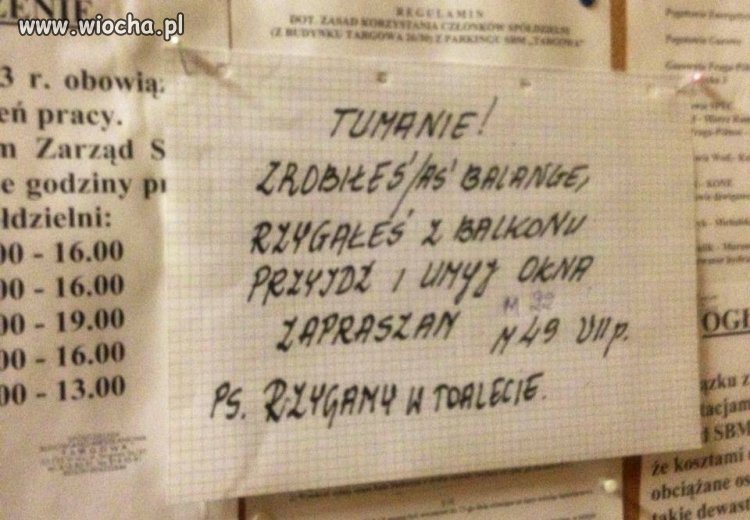 www.wiocha.pl
ZENIE
3 r. obowią
eń pracy.
m Zarząd S
e godziny pr
łdzielni:
00 - 16.00
00 - 16.00
00 - 19.00
00 - 16.00
00 - 13.00
REGULAMIN
DOT. ZASAD KORZYSTANIA CZŁONKÓW SPÓŁDZIELNI
(Z BUDYNKU TARGOWA 26/30) Z PARKINGU SBM „TARGOWA”
TUMANIE!
ZROBIŁEŚ/AŚ BALANGE,
RZYGAŁEŚ Z BALKONU
PRZYJDŹ I UMYJ OKNA
ZAPRASZAM M 49 VII p.
PS. RZYGAMY W TOALECIE.
Pogotowie Energetyczne
Pogotowie Gazowe
OGŁ
ązku z
tacjam
d SBM
że kosztami
obciążane os
takie dewast